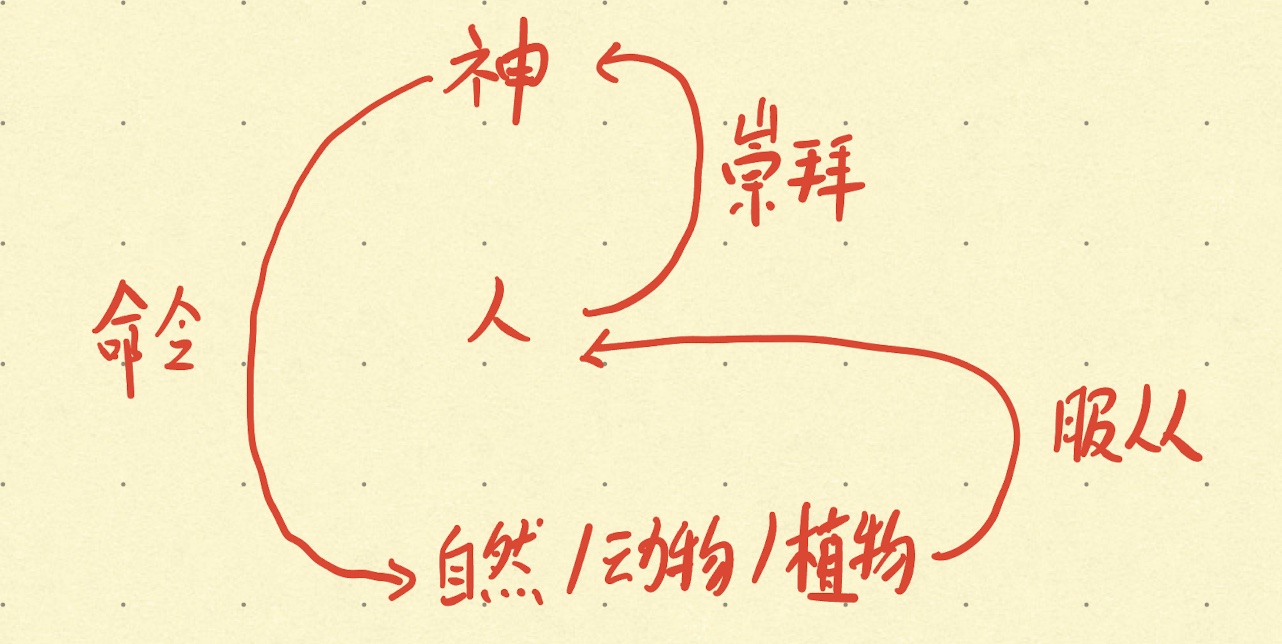 神
崇拜
人
命令
服从
自然/动物/植物